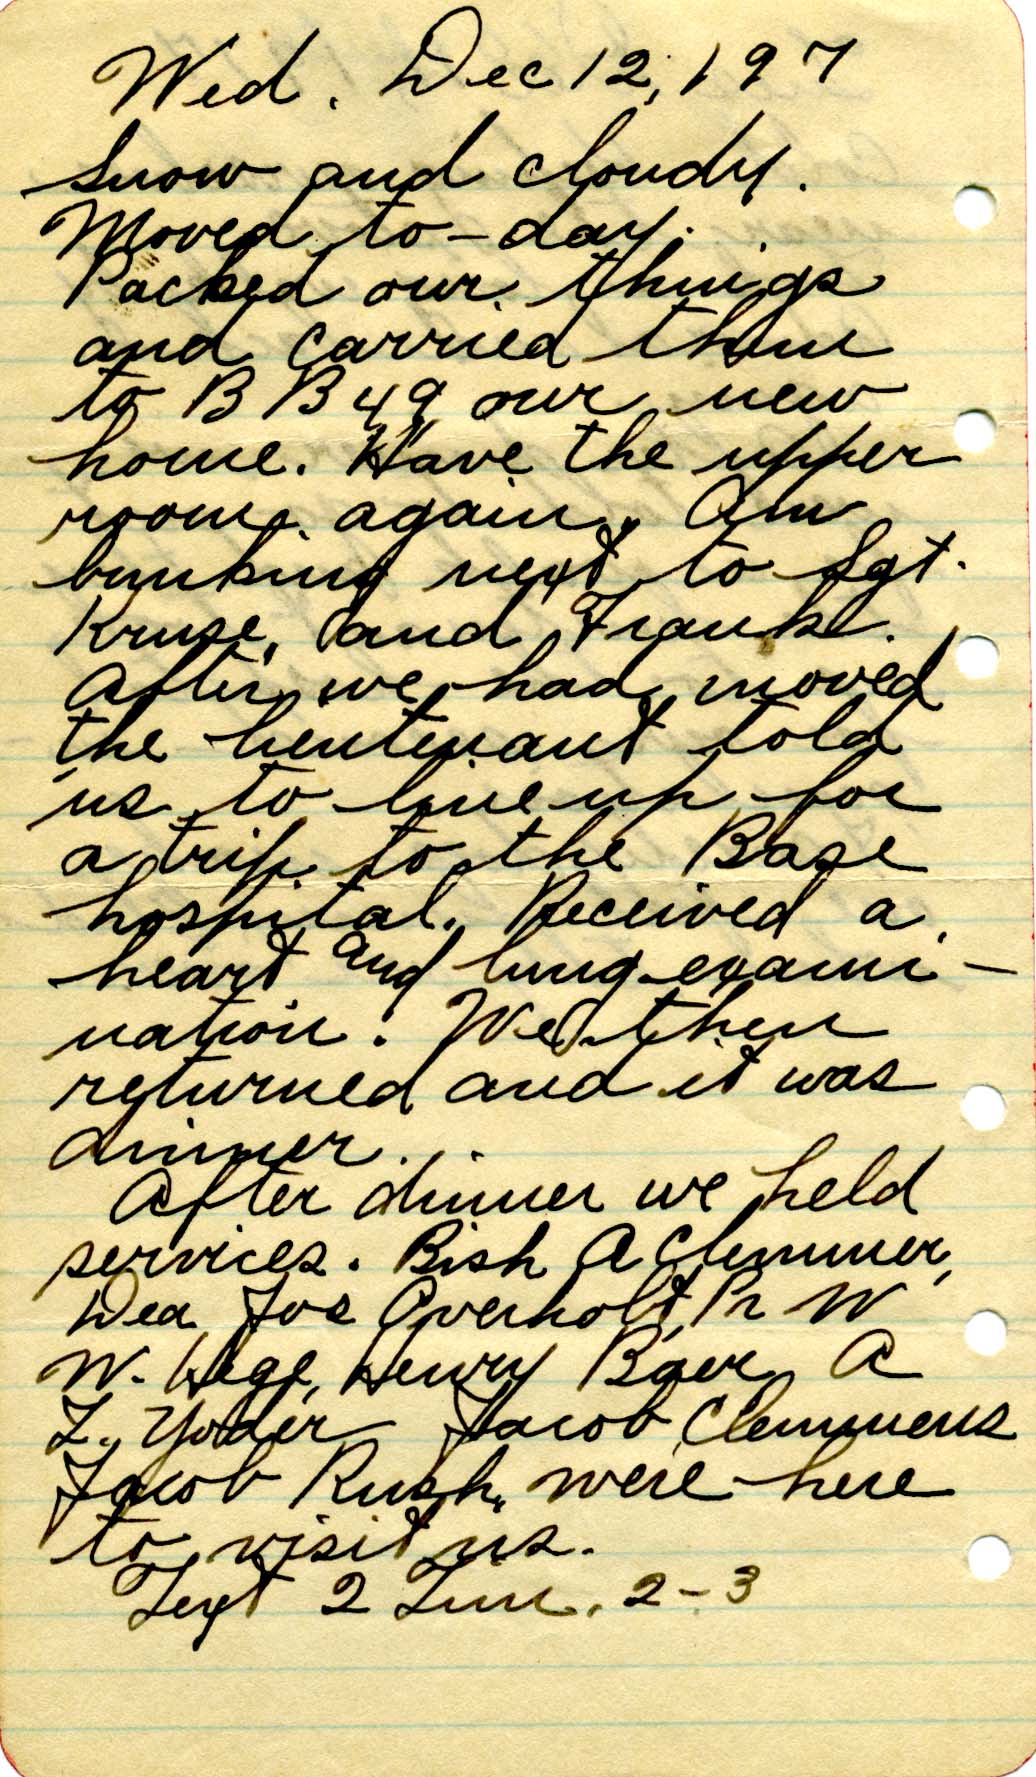 Wed. Dec 12, 197
Snow and cloudy.
Moved to-day.
Packed our things
and carried them
to BB 49 our new
home. Have the upper
room again. Am
bunking next to Sgt.
Kruse, and Frank.
After we had moved
the lieutenant told
us to line up for
a trip to the Base
hospital. Received a
heart and lung exami-
nation. We then
returned and it was
dinner.
After dinner we held
services. Bish A Clemmer,
Dea Jos Overholt, Pr W
W. Hege, Henry Baer, A
Z. Yoder Jacob Clemmens
Jacob Rush, were here
to visit us.
Text 2 Tim. 2-3